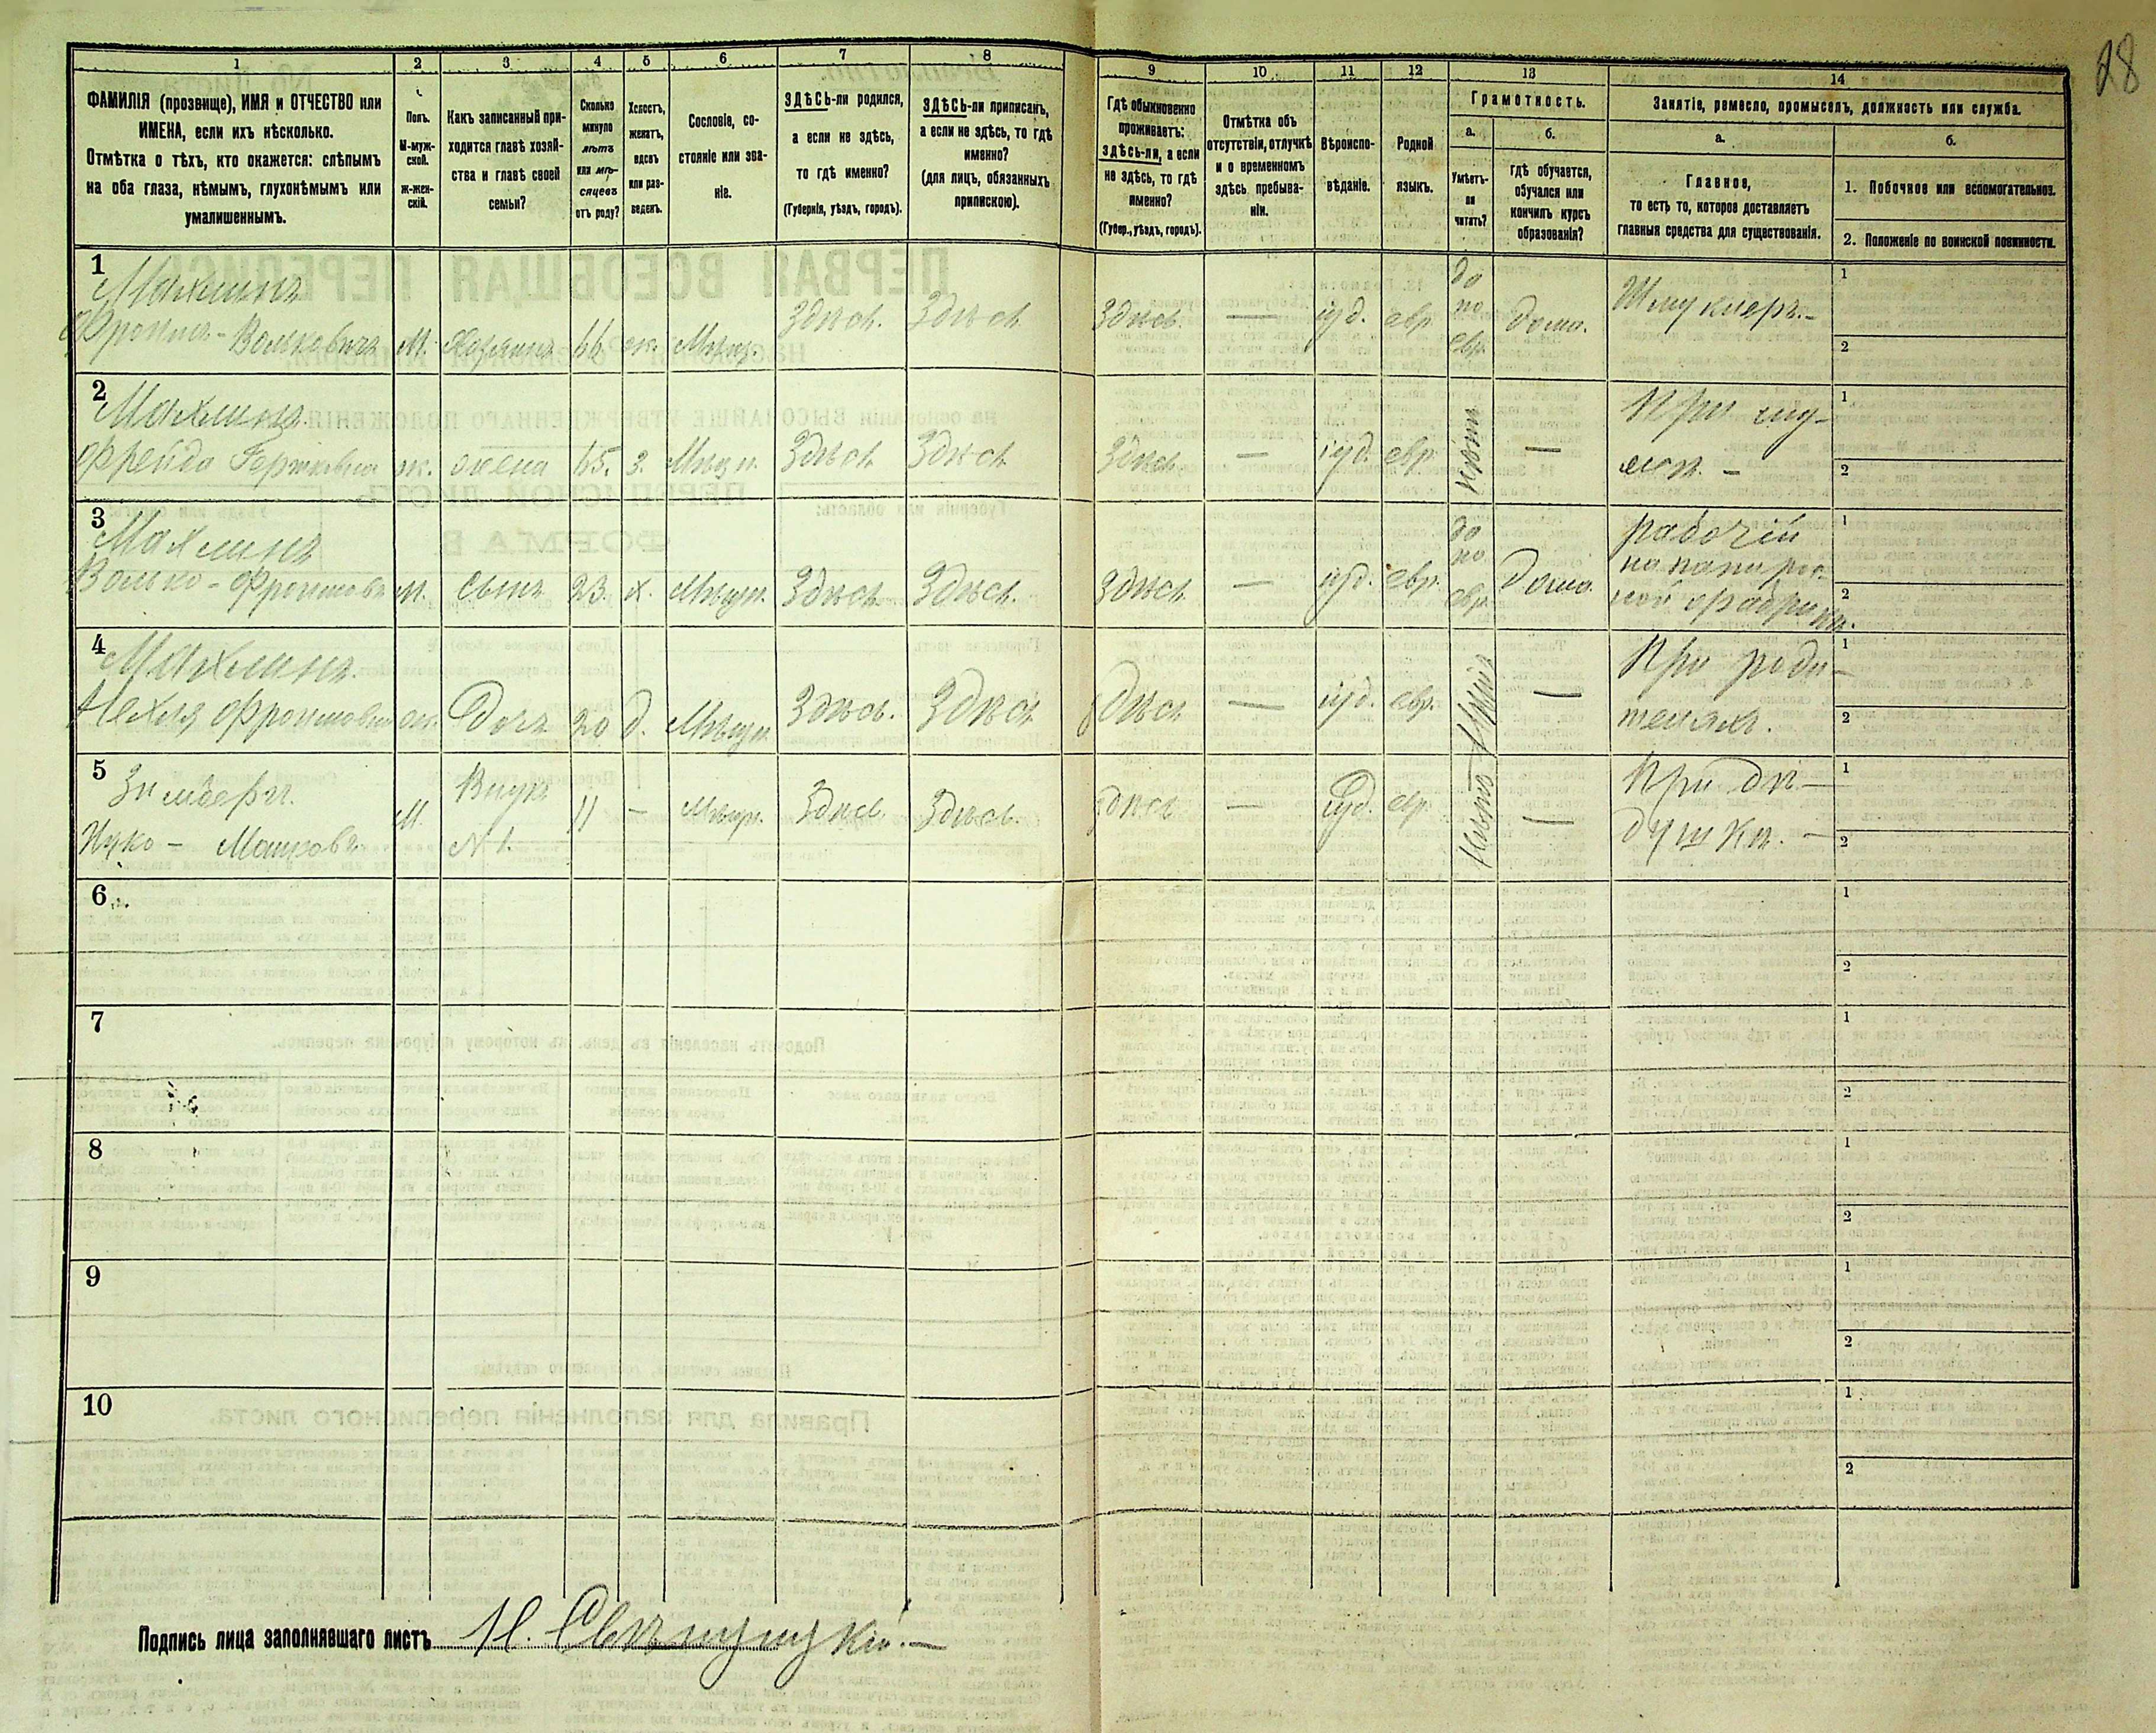 28
1
2
3
4
5
6
7
8
9
10
11
12
13
14
ФАМИЛІЯ (прозвище), ИМЯ и ОТЧЕСТВО или
ИМЕНА, если ихъ нѣсколько.
Отмѣтка о тѣхъ, кто окажется: слѣпымъ
на оба глаза, нѣмымъ, глухонѣмымъ или
умалишеннымъ.
Полъ.
М-муж-
ской.
Ж-жен-
скій.
Какъ записанный при-
ходится главѣ хозяй-
ства и главѣ своей
семьи?
Сколько
минуло
лѣтъ
или мѣ-
сяцевъ
отъ роду?
Холостъ,
женатъ,
вдовъ
или раз-
веденъ.
Сословіе, со-
стояніе или зва-
ніе.
ЗДѢСЬ-ли родился,
а если не здѣсь,
то гдѣ именно?
(Губернія, уѣздъ, городъ).
ЗДѢСЬ-ли приписанъ,
а если не здѣсь, то гдѣ
именно?
(для лицъ, обязанныхъ
припискою).
Гдѣ обыкновенно
проживаетъ:
здѣсь-ли, а если
не здѣсь, то гдѣ
именно?
(Губер., уѣздъ, городъ).
Отмѣтка объ
отсутствіи, отлучкѣ
и о временномъ
здѣсь пребыва-
ніи.
Вѣроиспо-
вѣданіе.
Родной
языкъ.
Грамотность.
а.
Умѣетъ-
ли
читать?
б.
гдѣ обучается,
обучался или
кончилъ курсъ
образованія?
Занятіе, ремесло, промыселъ, должность или служба.
а.
Главное,
то есть то, которое доставляетъ
главныя средства для существованія.
б.
1. Побочное или вспомогательное.
2. Положеніе по воинской повинности.
1
Махлинъ
Фроимъ-Вольковичъ М. Хозяинъ 66 ж. Мѣщ. Здѣсь. Здѣсь Здѣсь — іуд. евр. да по евр. дома. Шмуклеръ.-
1
2
2
Махлина
Фрейда ж. жена 65. з. Мѣщ. Здѣсь Здѣсь Здѣсь — іуд. евр. Нѣтъ —
1
2
3
Махлинъ
Волько-Фроимовъ м. сынъ 23. х. Мѣщ. Здѣсь Здѣсь. Здѣсь — іуд. евр. да по евр. Дома. рабочій
на папирос-
ной фабрикѣ.
1
2
4
Махлина
Фроимовна ж. Дочь 20 д. Мѣщ. Здѣсь. Здѣсь Здѣсь — іуд. евр. — При роди-
теляхъ.
1
2
5
Зильберъ.
Ицко- М. Внукъ
№1. 11 — Мѣщ. Здѣсь Здѣсь. Здѣсь — іуд. евр. — При дѣ-
душкѣ. —
1
2
6
1
2
7
1
2
8
1
2
9
1
2
10
1
2
Подпись лица заполнявшаго листъ